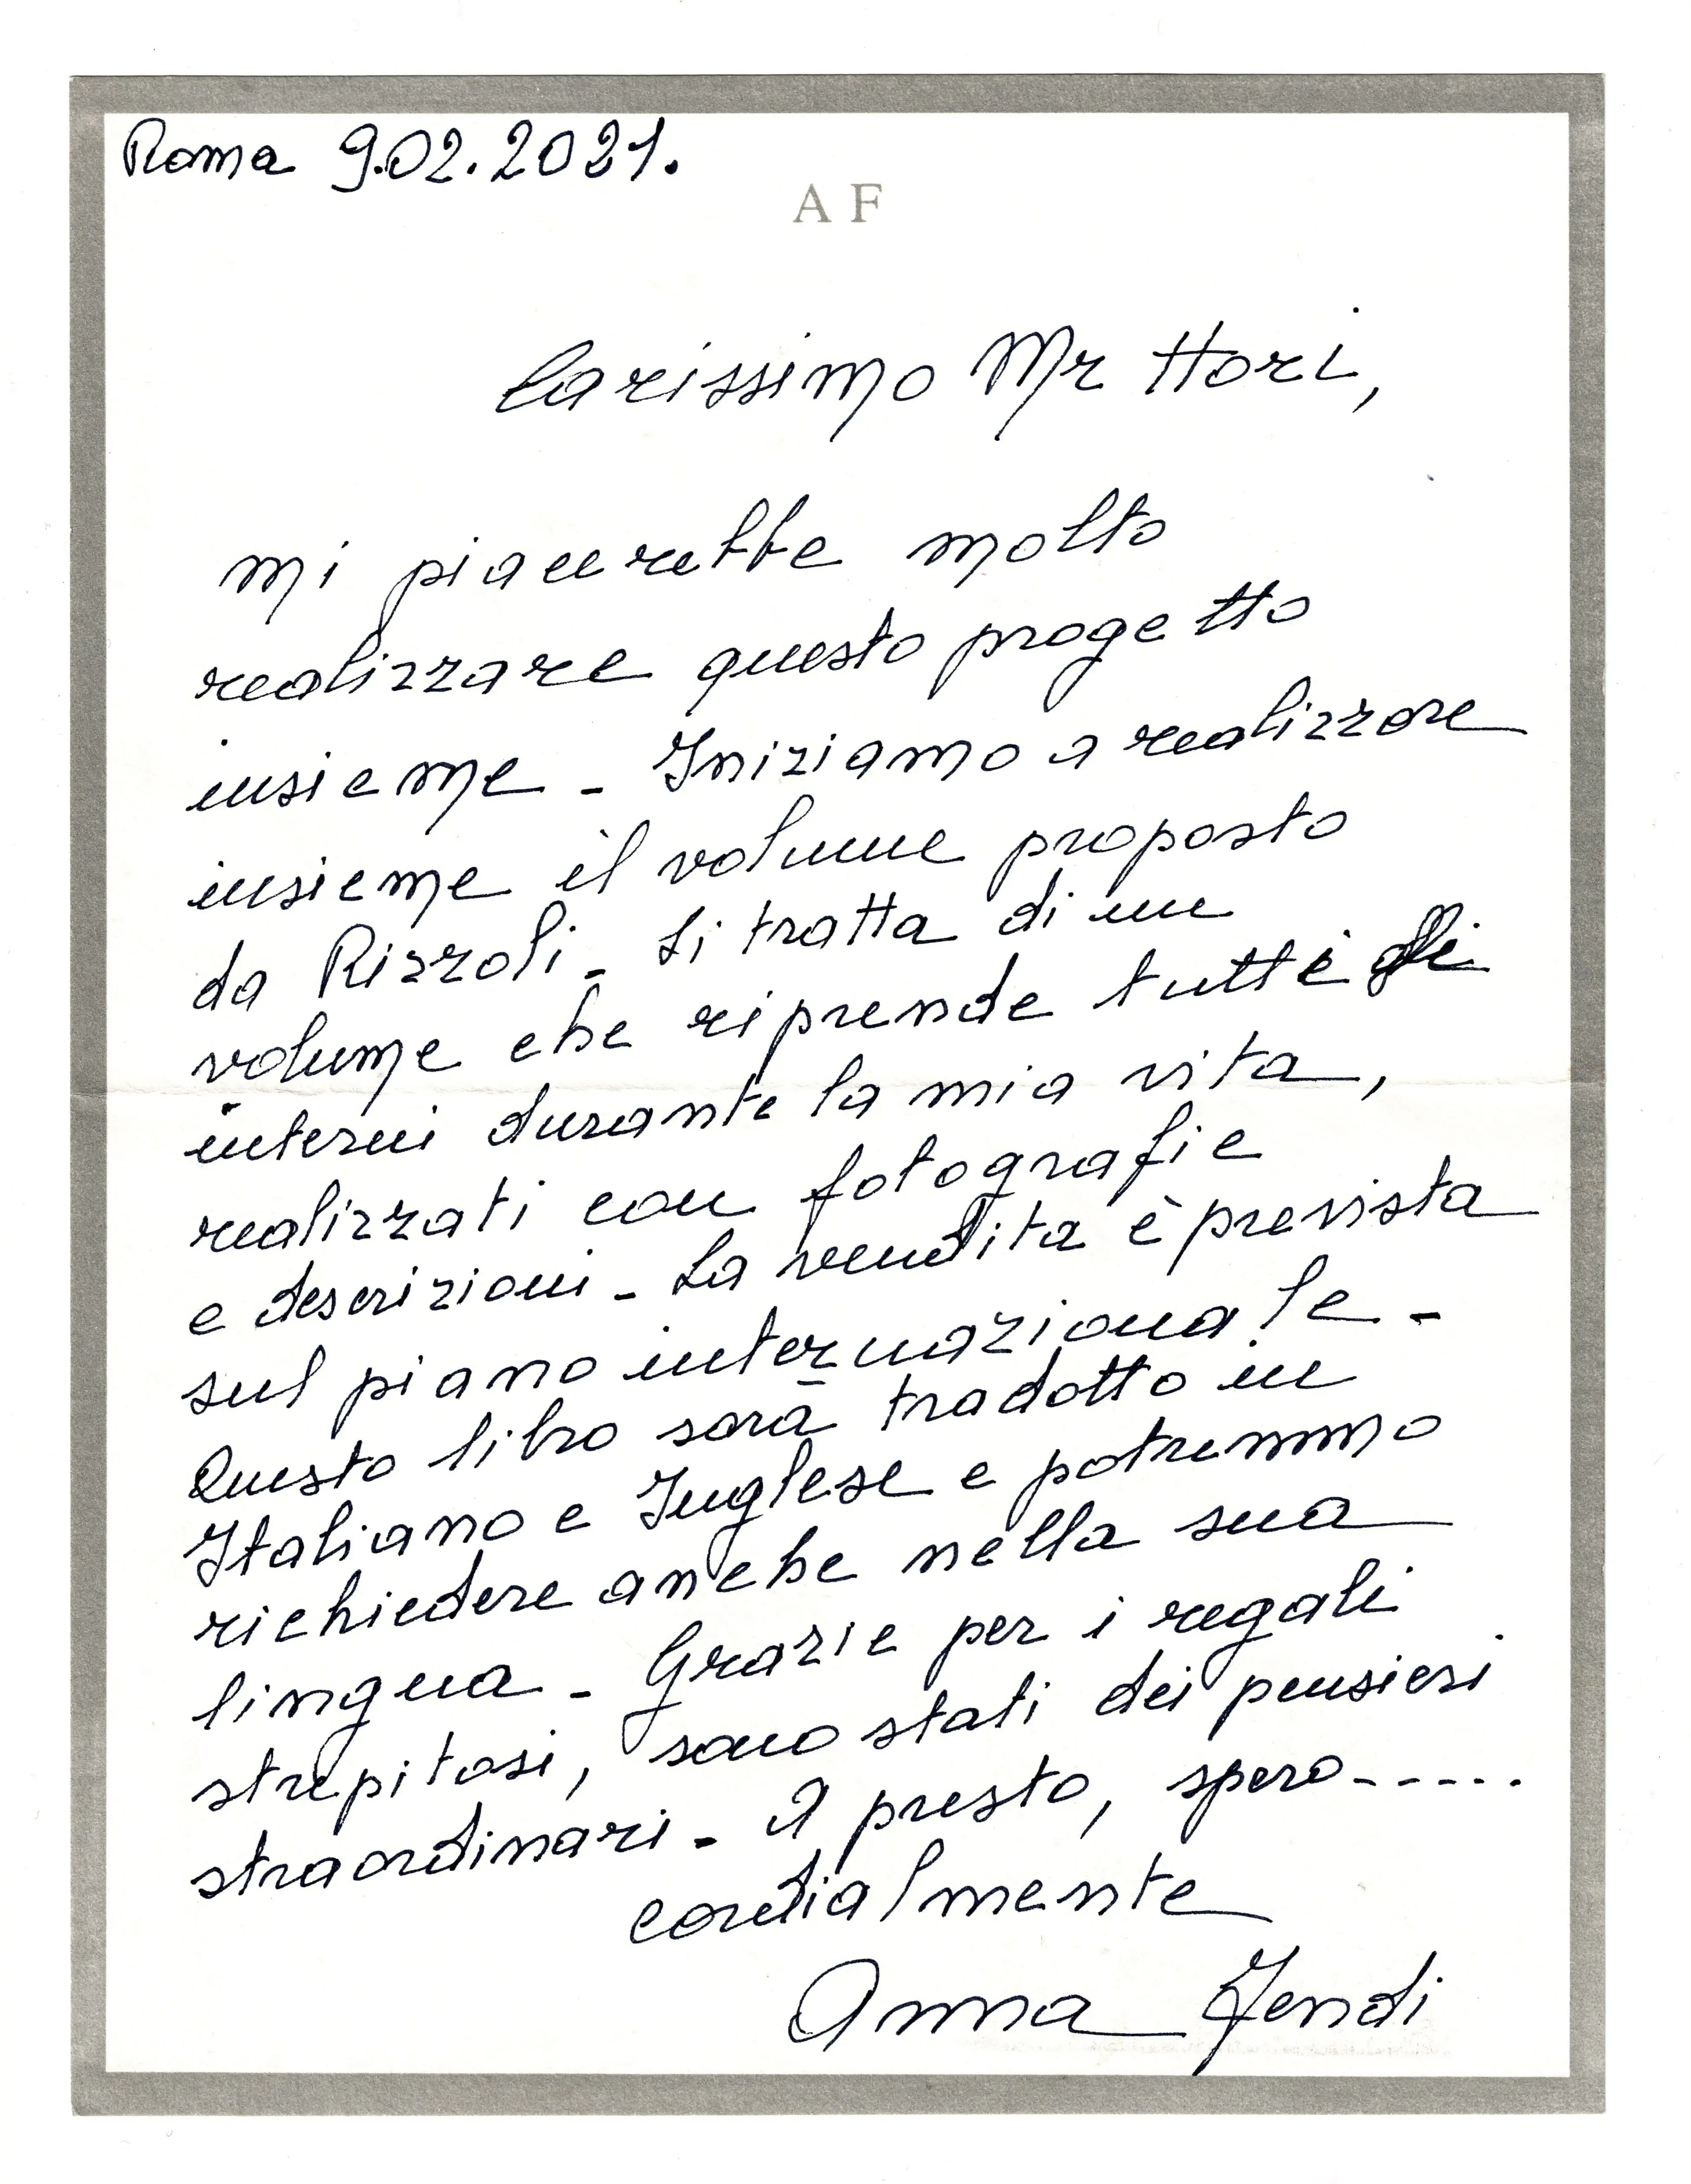 Roma 9.02.2021.
A F
Carissimo Mr Hori,
mi piacerebbe molto
realizzare questo progetto
insieme - Iniziamo a realizzare
insieme il volume proposto
da Rizzoli - Si tratta di un
volume che riprende tutti gli
interni durante la mia vita,
realizzati con fotografie
e descrizioni - La vendita è prevista
sul piano internazionale -
Questo libro sarà tradotto in
Italiano e Inglese e potremmo
richiedere anche nella sua
lingua - Grazie per i regali
strepitosi, sono stati dei pensieri
straordinari - A presto, spero-----
cordialmente
Anna Fendi